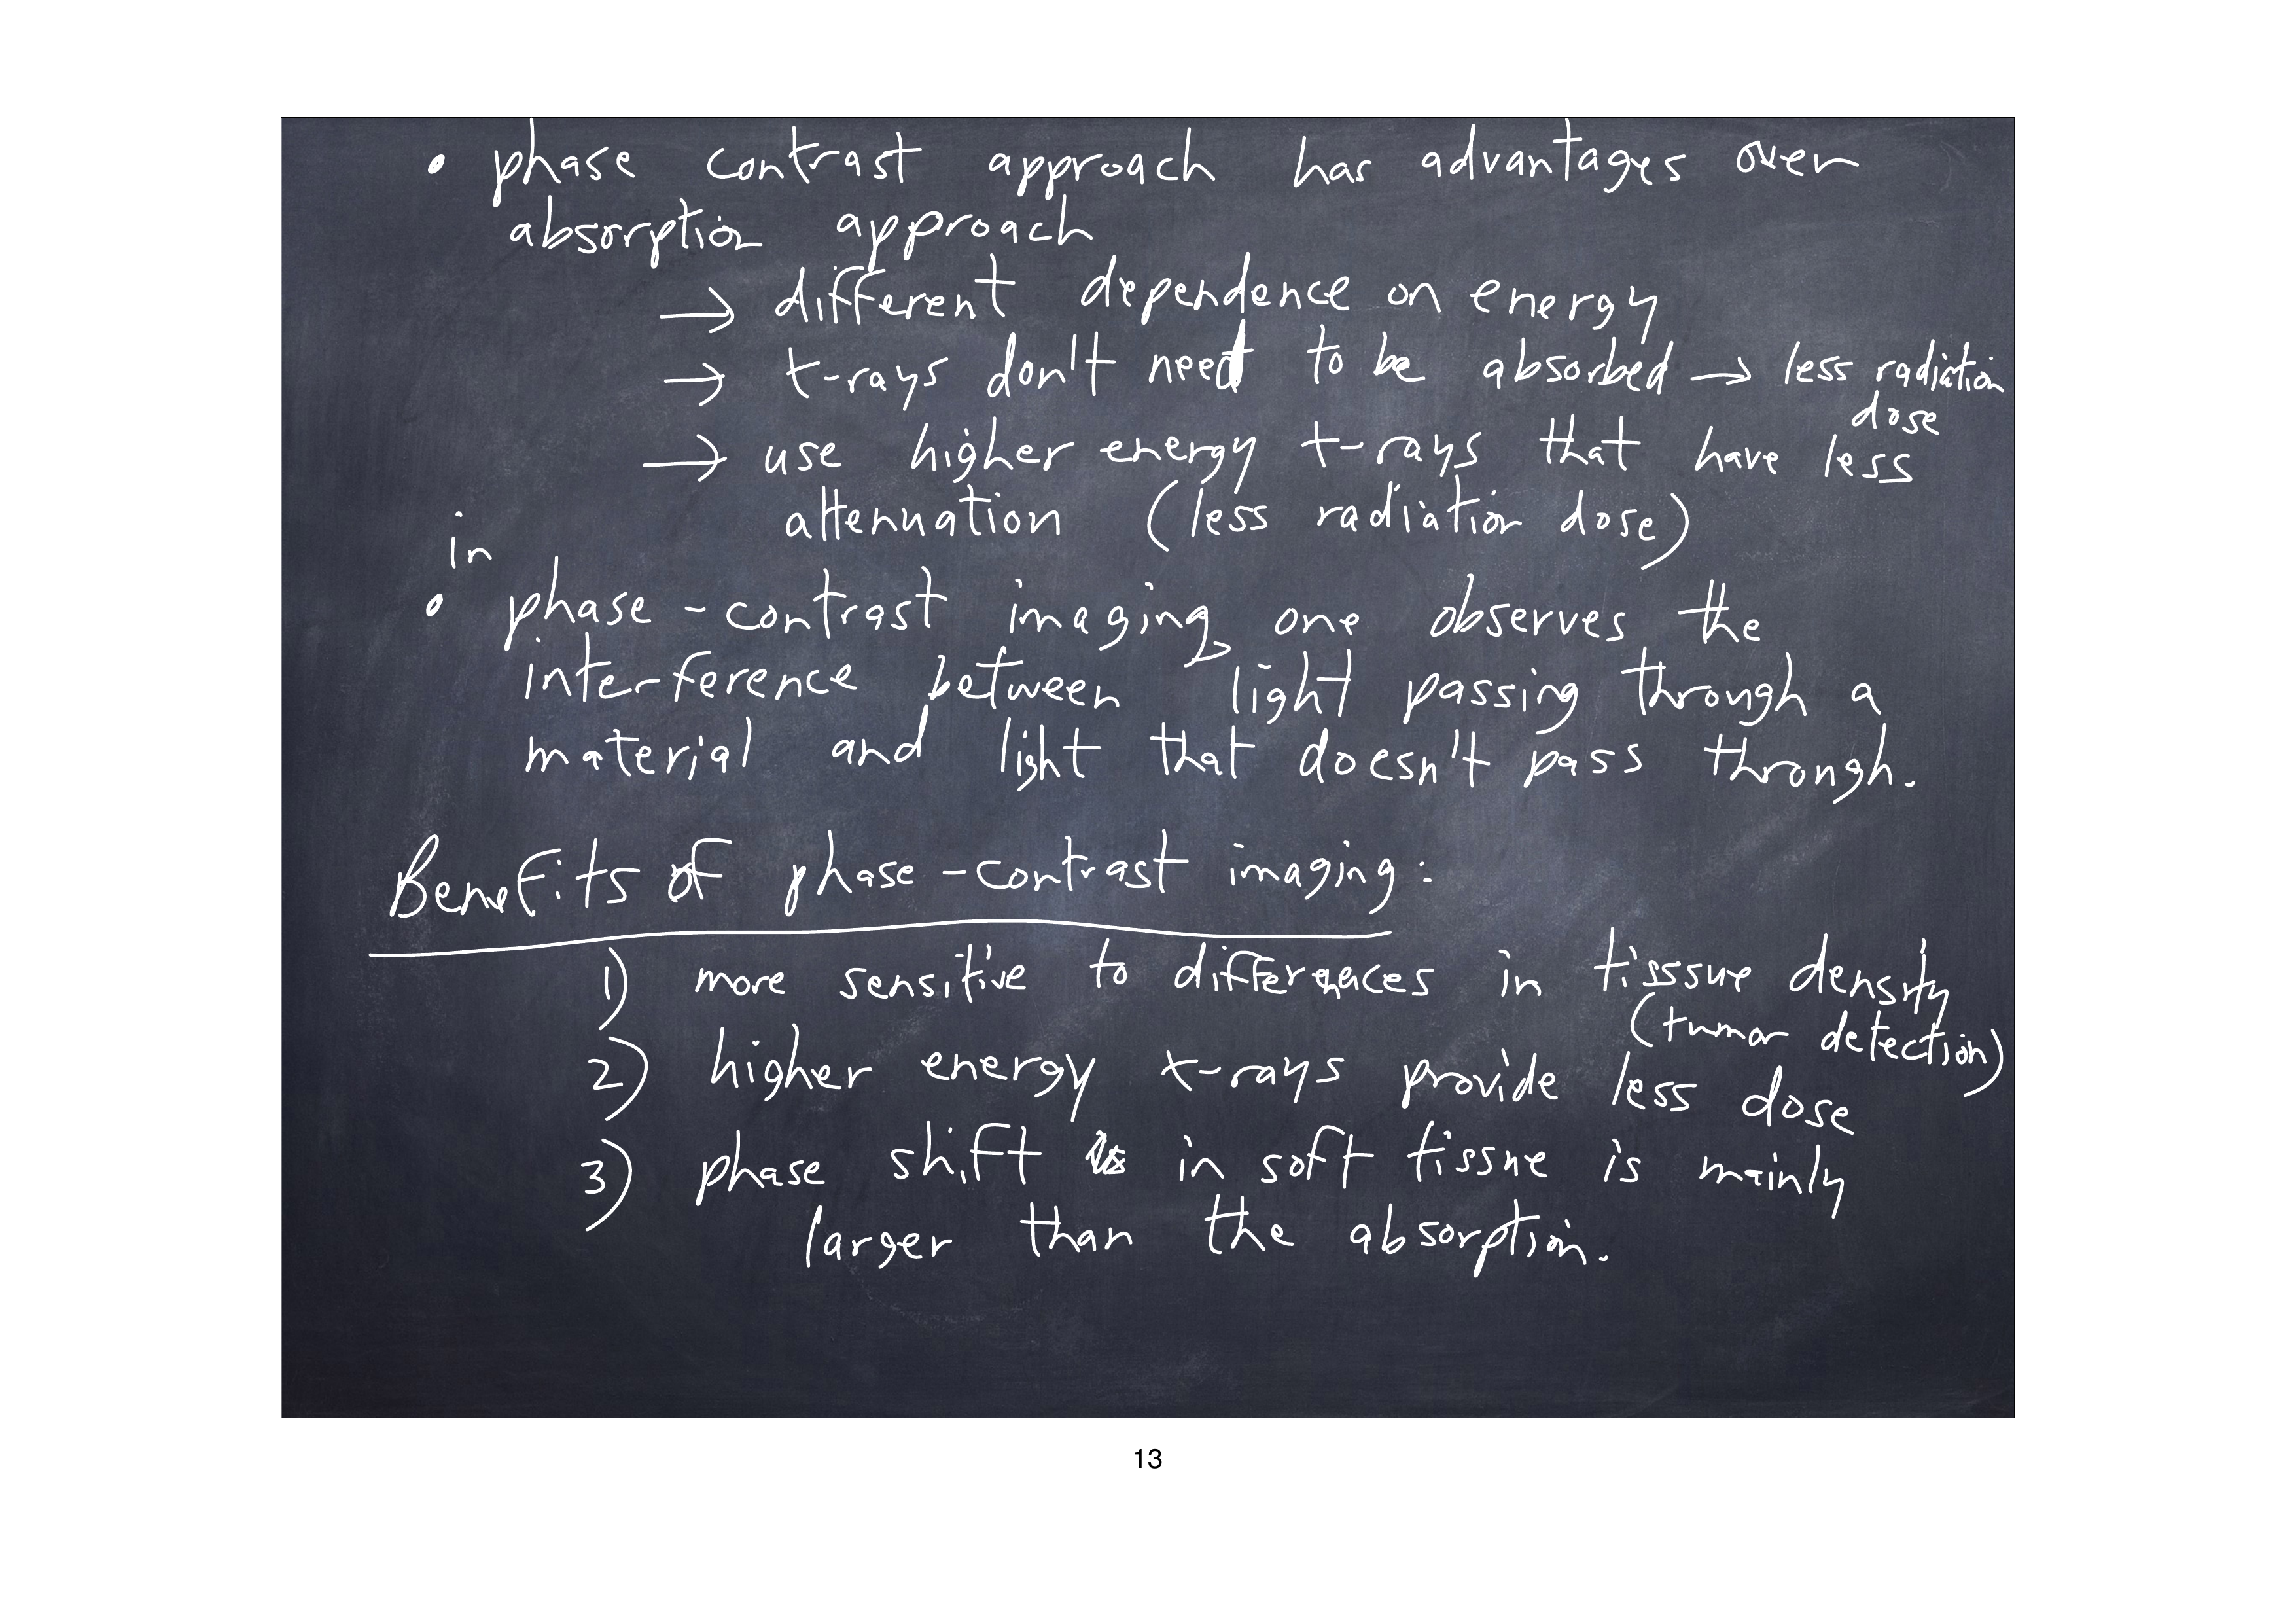 • phase contrast approach has advantages over
absorption approach
→ different dependence on energy
→ x-rays don't need to be absorbed → less radiation
dose
→ use higher energy x-rays that have less
attenuation (less radiation dose)
in
• phase-contrast imaging, one observes the
interference between light passing through a
material and light that doesn't pass through.
Benefits of phase-contrast imaging:
1) more sensitive to differences in tisssue density
(tumor detection)
2) higher energy x-rays provide less dose
3) phase shift in soft tissue is mainly
larger than the absorption.
13